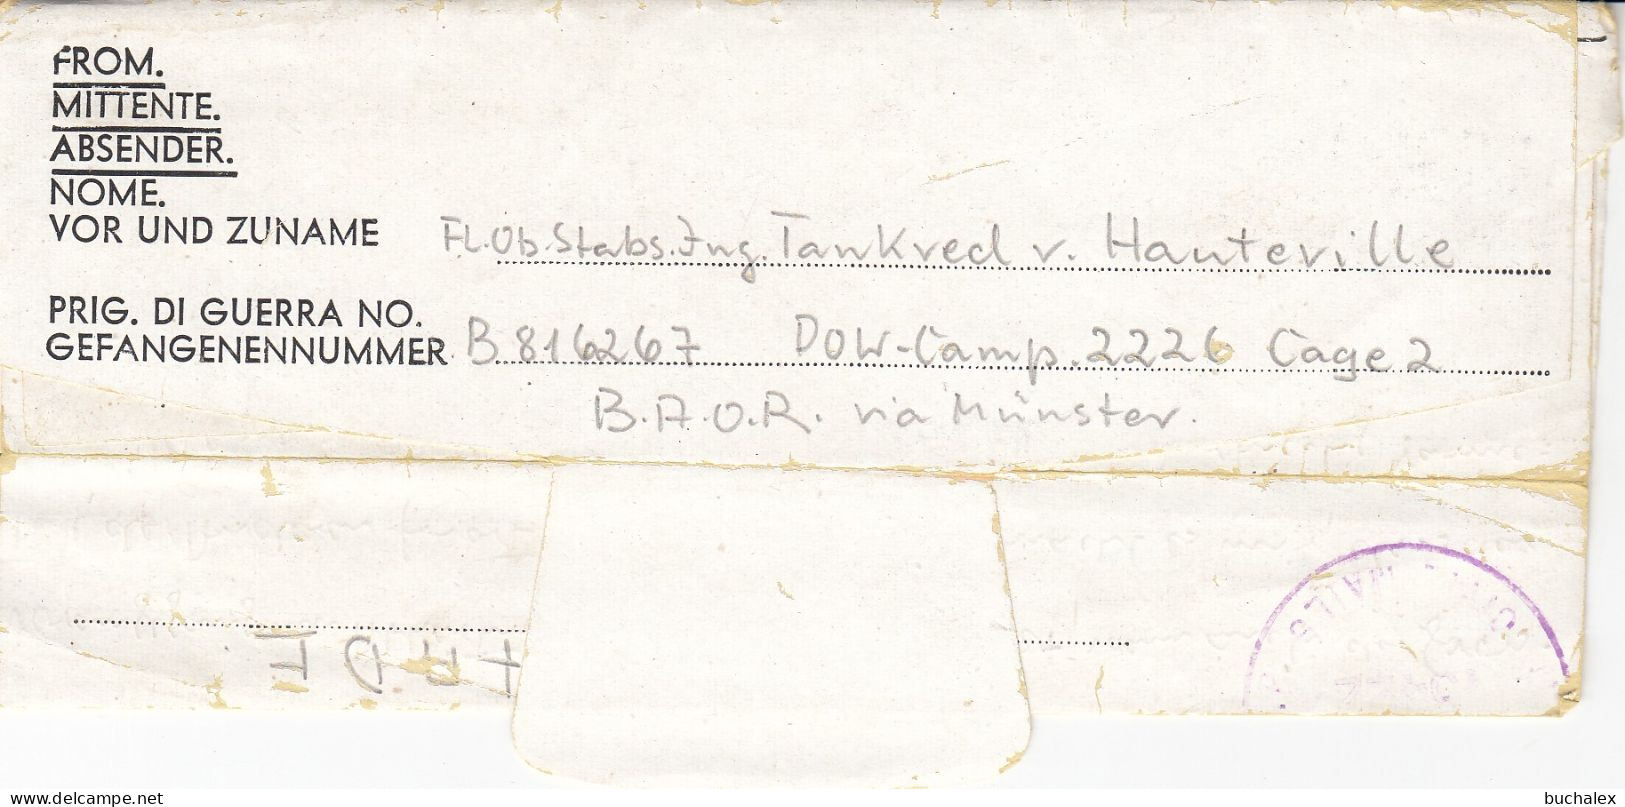 FROM.
MITTENTE.
ABSENDER.
NOME.
VOR UND ZUNAME Fl.Ob.Stabs.Ing. Tankred v. Hauteville
PRIG. DI GUERRA NO.
GEFANGENENNUMMER B 816267 POW-Camp. 2226 Cage 2
B.A.O.R. via Münster.
MAILS
buchalex